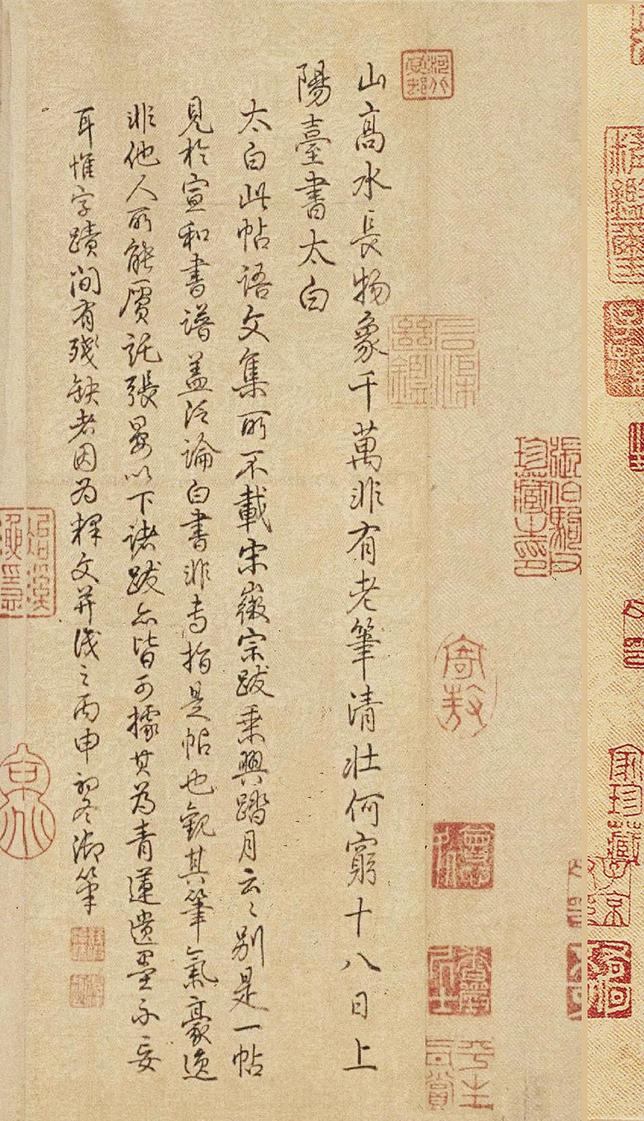 山高水長物象千萬非有老筆清壯何窮十八日上
陽臺書太白
太白此帖語文集所不載宋徽宗跋乘興踏月云云別是一帖
見於宣和書譜蓋泛論白書非専指是帖也觀其筆氣豪逸
非他人所能贋託張晏以下諸跋亦皆可據其為青蓮遺墨不妄
耳惟字蹟間有殘缺者因為釋文并識之丙申初冬御筆
張伯駒父
珍藏之印